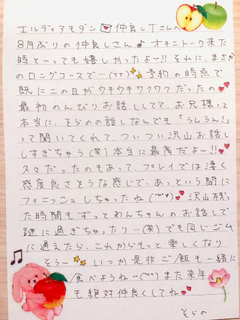 エルディアモダン 仲良しTさんへ
8月ぶりの仲良しさん♪オキニトーク来た
時とーっても嬉しかったよー!!それに、まさか
のロングコースで…(††)予約の時点で
既にこの日がウキウキワクワクだったの
最初のんびりお話ししてて、お兄様って
本当に、そらのの話しなんでも「うんうん!」
って聞いてくれて、ついつい沢山お話し
しすぎちゃう(笑)本当に最高だよー!!
久々だったのもあって、プレイでは凄く
感度良さそうな感じで、あっという間に
フィニッシュしちゃったね(〃ω〃)沢山残っ
た時間もずっとわんちゃんのお話しで
謎に過ぎちゃったり…(笑)でも同じジム
に通えたら、これからもっと楽しくなり
そうー いつか是非ご飯も一緒に
食べようねー(〃ω〃)また来年
も絶対仲良くしてね
そらの